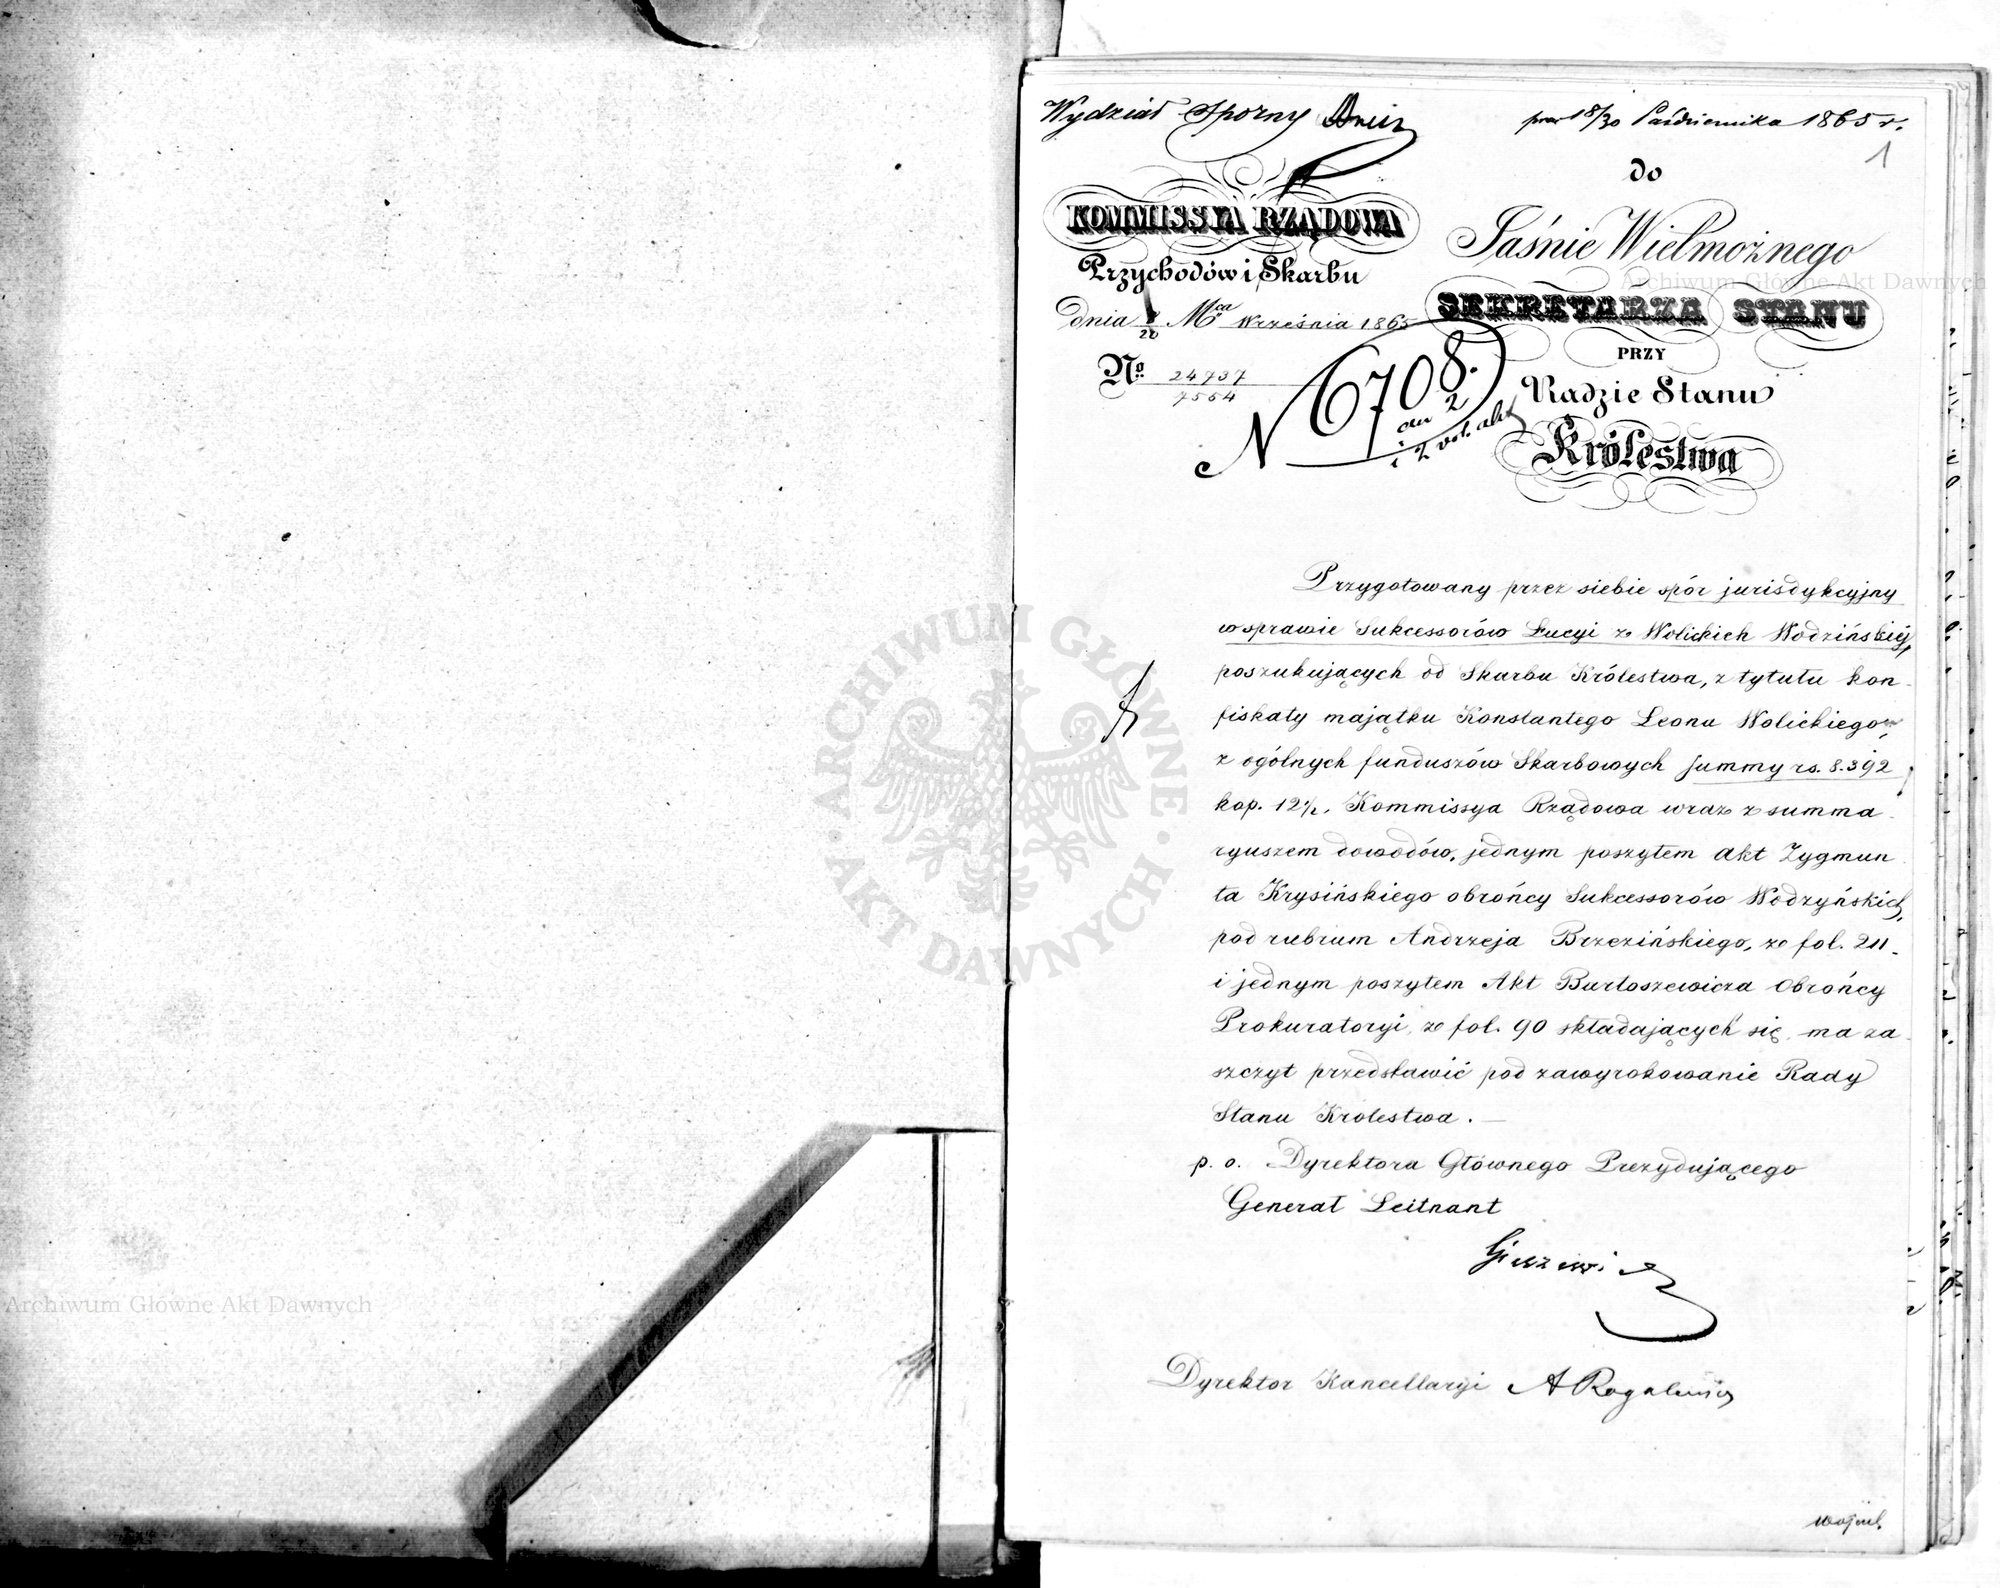 Wydział Sporny
18/30 Października 1865 r.
1
do
KOMMISSYA RZĄDOWA
Przychodów i Skarbu
dnia 8/20 Mca Września 1865
No 24737
7564
Jaśnie Wielmożnego
SEKRETARZA STANU
PRZY
Radzie Stanu
Królestwa
N 6708.
an 2
i 2 vol. akt
Przygotowany przez siebie spór jurisdykcyjny
w sprawie Sukcessorów Łucyi z Wolickich Wodzińskiéj,
poszukujących od Skarbu Królestwa, z tytułu kon-
fiskaty majątku Konstantego Leona Wolickiego,
z ogólnych funduszów Skarbowych summy rs. 8.392
kop. 12½, Kommissya Rządowa wraz z summa-
ryuszem dowodów, jednym poszytem Akt Zygmun-
ta Krysińskiego obrońcy Sukcessorów Wodzyńskich,
pod rubrum Andrzeja Brzezińskiego, ze fol. 211.
i jednym poszytem Akt Bartoszewicza Obrońcy
Prokuratoryi, ze fol. 90 składających się, ma za-
szczyt przedstawić pod zawyrokowanie Rady
Stanu Królestwa. —
p. o. Dyrektora Głównego Prezydującego
Generał Leitnant
Dyrektor Kancellaryi A Rogalewicz
Archiwum Główne Akt Dawnych
ARCHIWUM GŁÓWNE · AKT DAWNYCH ·
Archiwum Główne Akt Dawnych